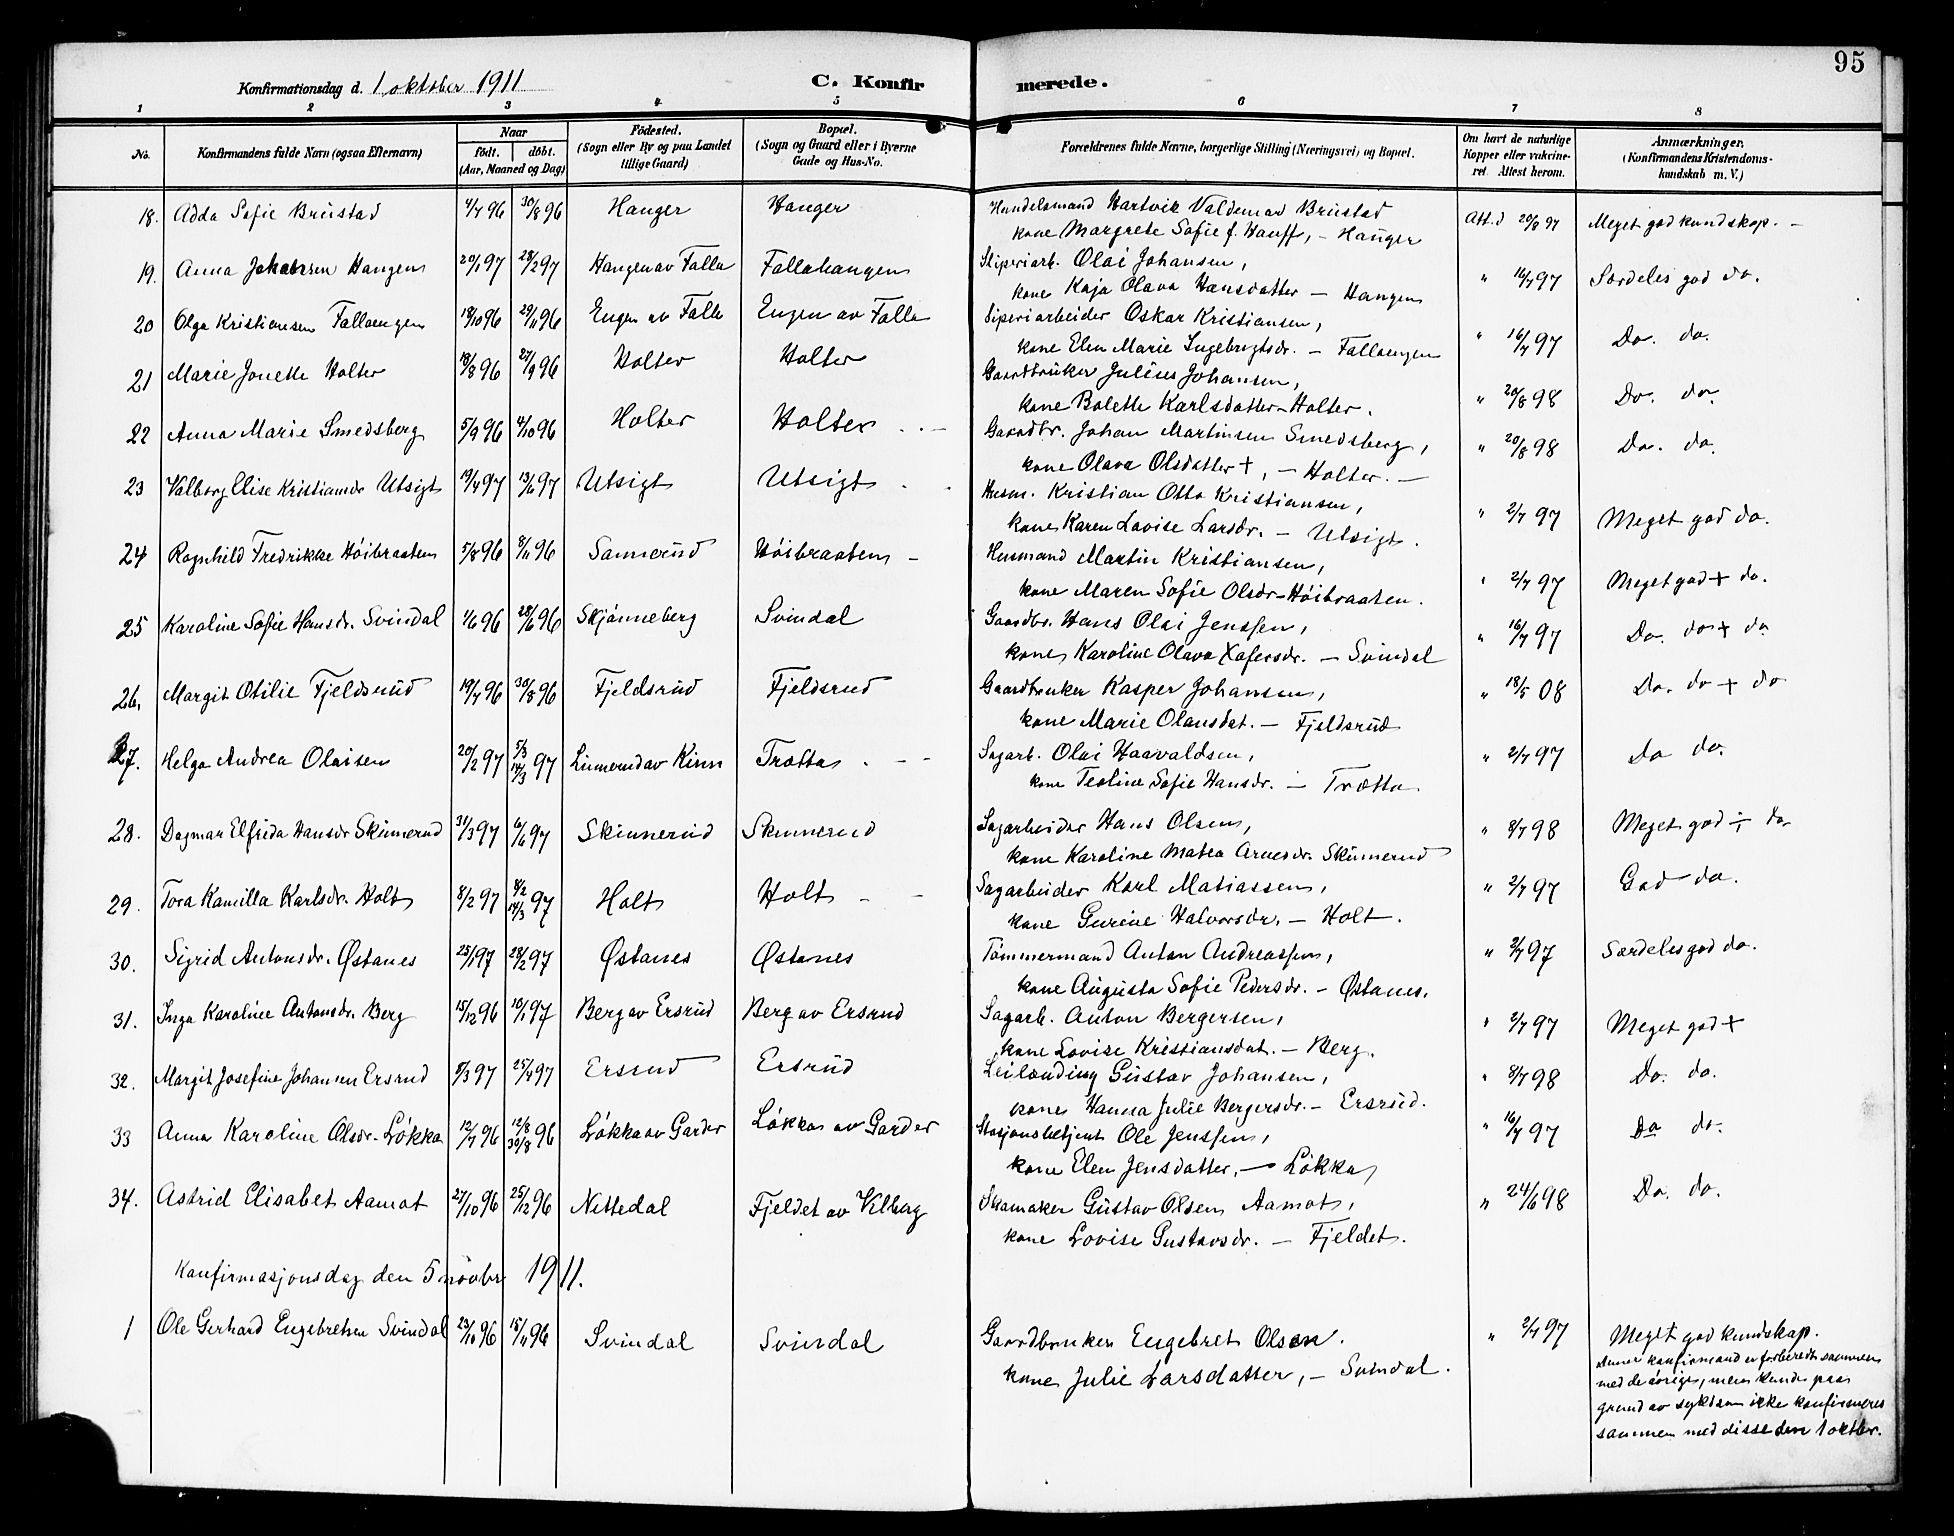 95
Konfirmationsdag d. 1 oktober 1911 C. Konfirmerede.
1 2 3 4 5 6 7 8
No. Konfirmandens fulde Navn (ogsaa Efternavn) Naar født. døbt. (Aar, Maaned og Dag) Fødested. (Sogn eller By og paa Landet tillige Gaard) Bopæl. (Sogn og Gaard eller i Byerne Gade og Hus-No. Forældrenes fulde Navne, borgerlige Stilling (Næringsvei) og Bopæl. Om havt de naturlige Kopper eller vakcineret. Attest herom. Anmærkninger. (Konfirmandens Kristendomskundskab m. V.)
18. Adda Sofie Brustad 4/7 96 30/8 96 Hanger Hanger Handelsmand Hartvik Valdemar Brustad Att. d 20/8 97 Meget god kundskap. -
kone Margrete Sofie f. Hauff, - Hanger
19. Anna Johansen Hangen 20/1 97 28/2 97 Hangen av Falla Fallahangen Sliperiarb. Olai Johansen, " 16/7 97 Særdeles god do.
kone Kaja Olava Hansdatter - Hangen
20 Olga Kristiansen Fallaengen 18/10 96 29/11 96 Engen av Falla Engen av Falla Sliperiarbeider Oskar Kristiansen, " 16/7 97 Do. do.
kone Elen Marie Ingebrigtsdr. - Fallaengen
21 Marie Jonette Holter 18/8 96 27/9 96 Holter Holter Gaardbruker Julius Johansen, " 20/8 98 Do. do.
kone Bolette Karlsdatter - Holter.
22 Anna Marie Smedsberg 5/9 96 4/10 96 Holter Holter Gaardbr. Johan Martinsen Smedsberg, " 20/8 98 Do. do.
kone Olava Olsdatter +, - Holter. -
23 Valborg Elise Kristiansdr Utsigt 19/4 97 13/6 97 Utsigt Utsigt Husm. Kristian Otto Kristiansen, " 2/7 97 Meget god do.
kone Karen Lovise Larsdr. - Utsigt.
24 Ragnhild Fredrikke Høibraaten 5/8 96 8/11 96 Sannerud Høibraaten - Husmand Martin Kristiansen, " 2/7 97 Meget god + do.
kone Maren Sofie Olsdr - Høibraaten.
25 Karoline Sofie Hansdr. Svindal 1/6 96 28/6 96 Skjønneberg Svindal Gaardbr. Hans Olai Jenssen, " 16/7 97 Do. do + do
kone Karoline Olava - Svindal
26. Margit Otilie Fjeldsrud 19/7 96 30/8 96 Fjeldsrud Fjeldsrud Gaardbruker Kasper Johansen, " 18/5 08 Do. do + do
kone Marie Olausdat. - Fjeldsrud
27. Helga Andrea Olaisen 20/2 97 5/3 14/3 97 Linnerud av Kinn Trætta Sagarb. Olai Haavaldsen, " 2/7 97 Do do.
kone Teoline Sofie Hansdr. - Trætta
28. Dagmar Elfrida Hansdr Skinnerud 31/3 97 6/6 97 Skinnerud Skinnerud Sagarbeider Hans Olsen, " 8/7 98 Meget god ÷ do
kone Karoline Matea Arnesdr. Skinnerud
29. Tora Kamilla Karlsdr. Holt 8/2 97 8/2 14/3 97 Holt Holt Sagarbeider Karl Matiassen, " 2/7 97 God do.
kone Gurine Halvorsdr. - Holt.
30. Sigrid Antonsdr. Østanes 25/1 97 28/2 97 Østanes Østanes Tømmermand Anton Andreassen, " 2/7 97 Særdeles god do.
kone Augusta Sofie Pedersdr. - Østanes.
31. Inga Karoline Antonsdr. Berg 15/12 96 10/1 97 Berg av Ersrud Berg av Ersrud Sagarb. Anton Bergersen, " 2/7 97 Meget god +
kone Lovise Kristiansdat. - Berg.
32. Margit Josefine Johansen Ersrud 5/3 97 25/4 97 Ersrud Ersrud Leilænding Gustav Johansen, " 8/7 98 Do. do.
kone Hanna Julie Bergersdr. - Ersrud.
33 Anna Karoline Olsdr. Løkka 12/7 96 12/8 30/8 96 Løkka av Garder Løkka av Garder Stasjonsbetjent Ole Jenssen, " 16/7 97 Do do.
kone Elen Jensdatter, - Løkka
34. Astrid Elisabet Aamot 27/10 96 25/12 96 Nittedal Fjeldet av Vilberg Skomaker Gustav Olsen Aamot, " 24/6 98 Do. do.
kone Lovise Gustavsdr. - Fjeldet.
Konfirmasjonsdag den 5 novbr 1911.
1 Ole Gerhard Engebretsen Svindal 23/10 96 15/11 96 Svindal Svindal Gaardbruker Engebret Olsen. " 2/7 97 Meget god kundskap.
kone Julie Larsdatter, - Svindal.
Denne konfirmand er forberedt sammen
med de øvrige, men kunde paa
grund av sykdom ikke konfirmeres
sammen med disse den 1 oktbr.